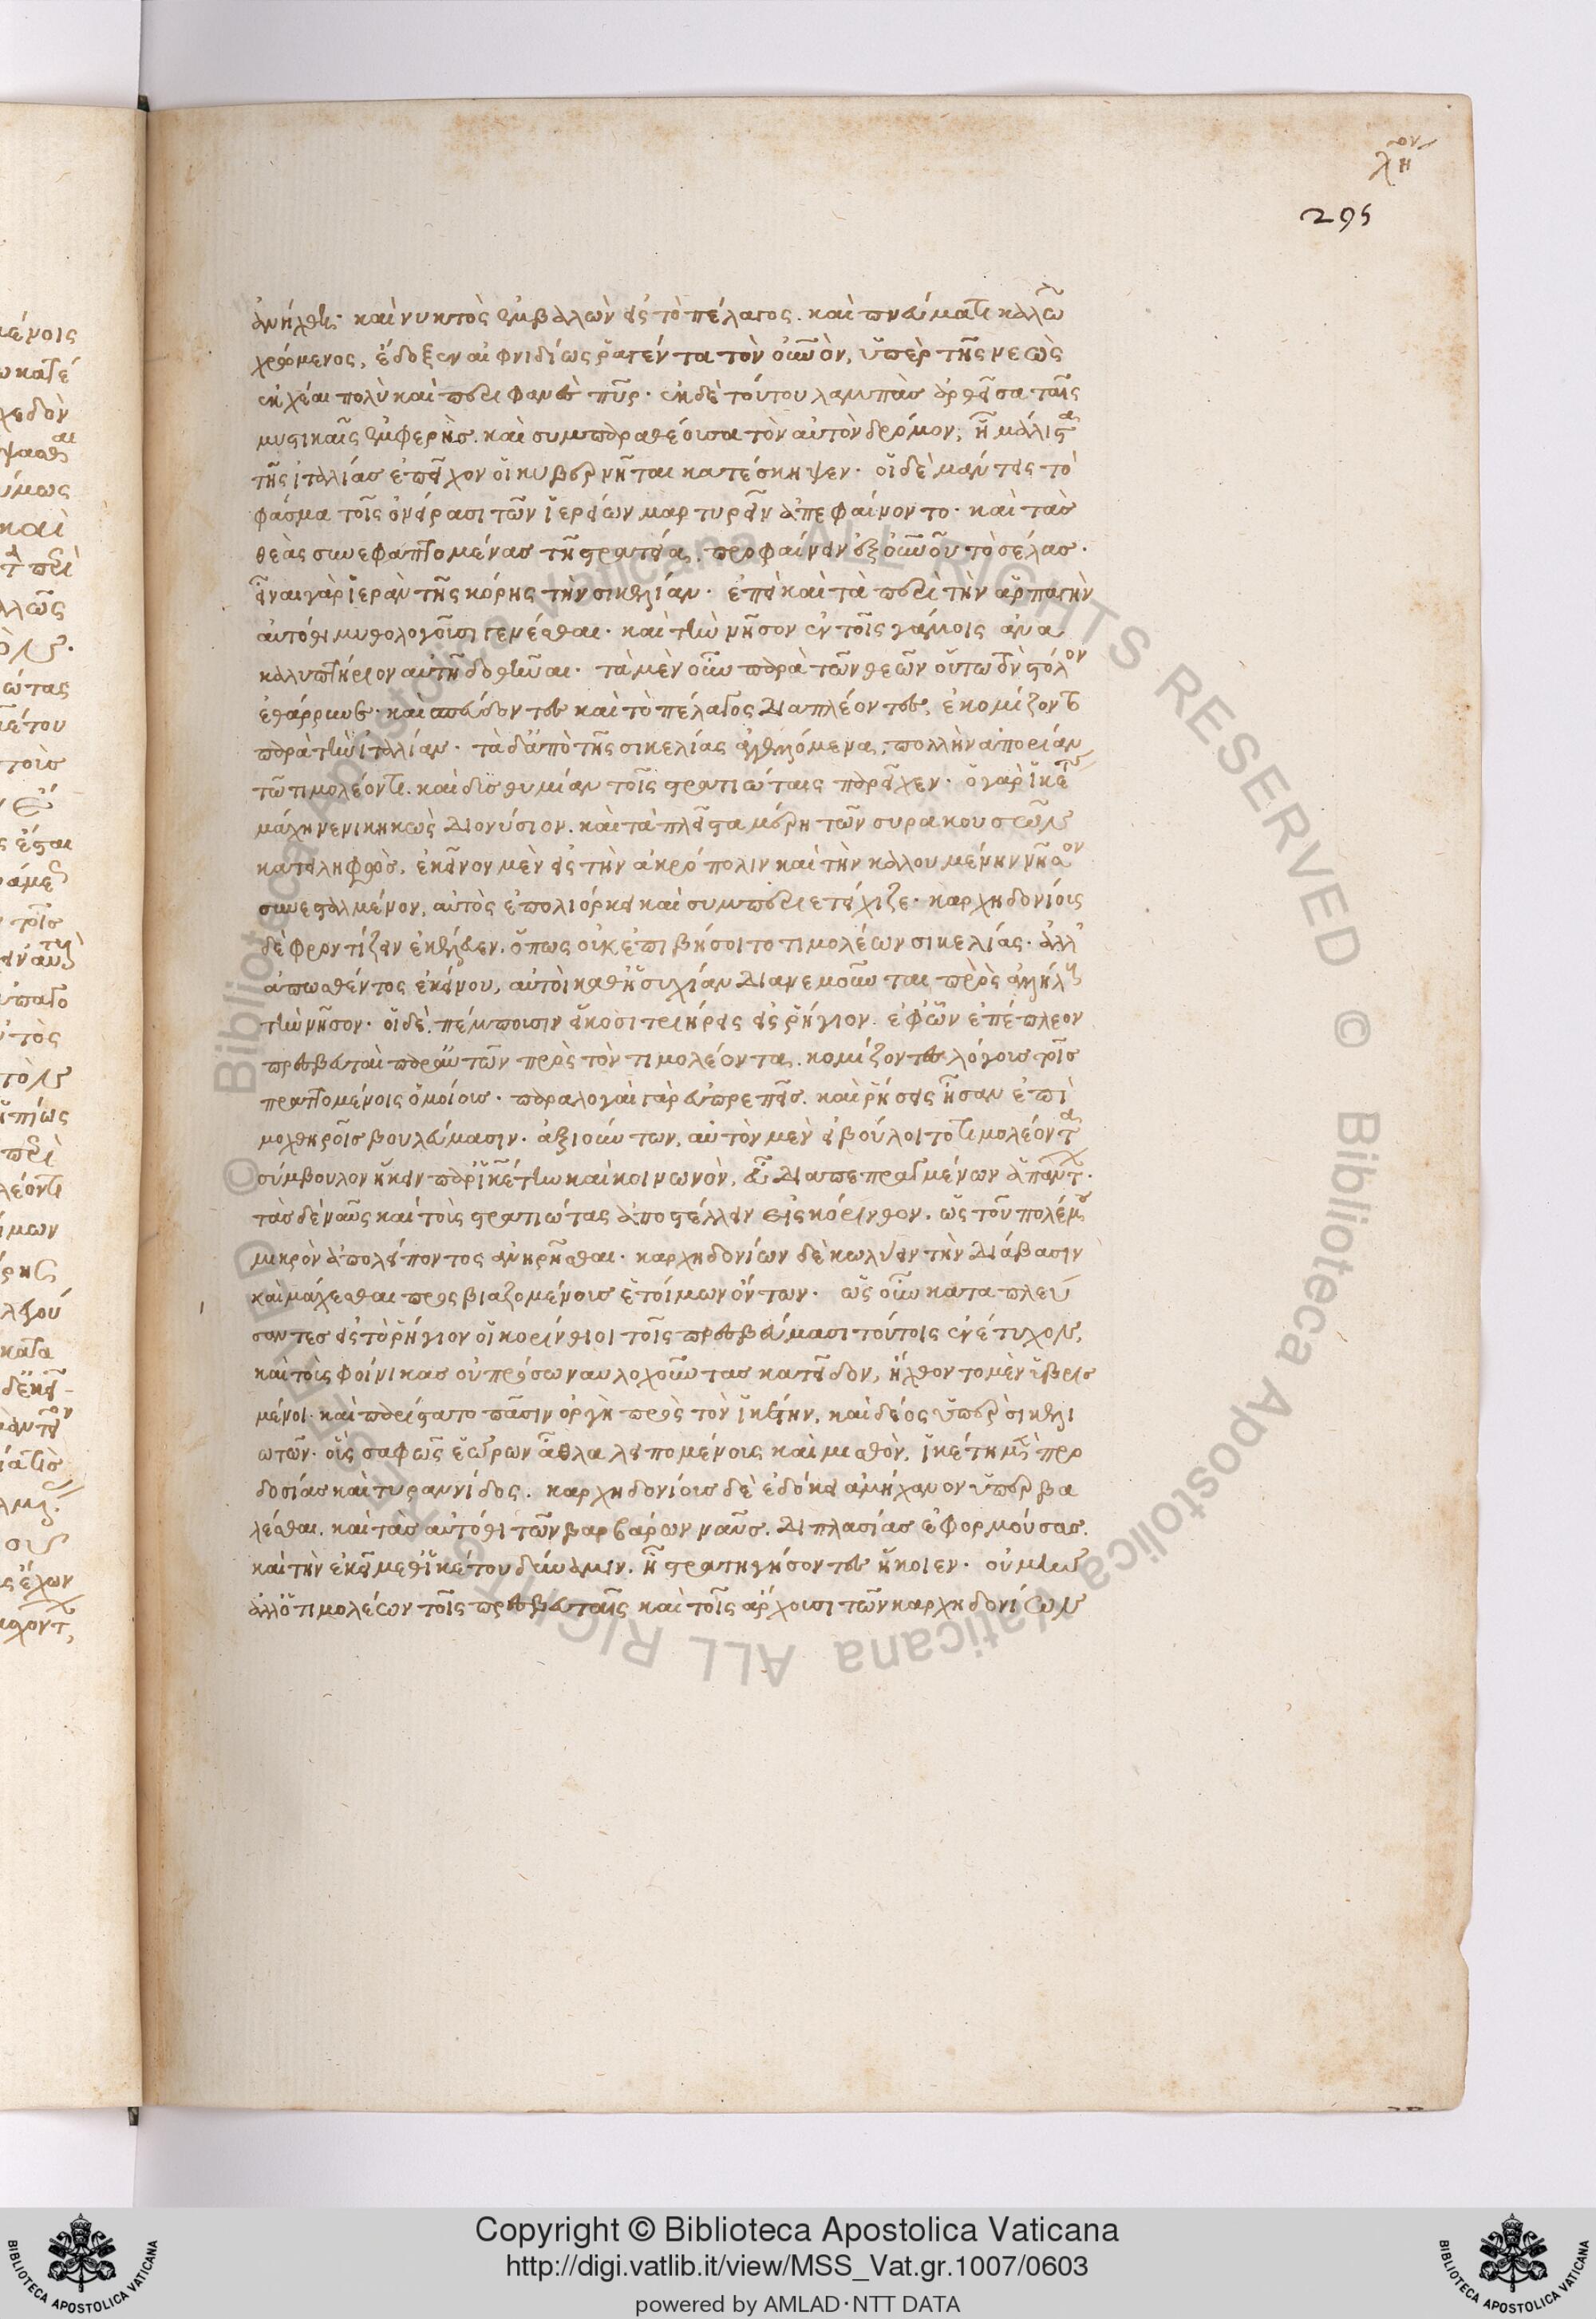 λη ον
295
ἀνήχθη· καὶ νυκτὸς ἐμβαλὼν εἰς τὸ πέλαγος. καὶ πνεύματι καλῶ
χρώμενος, ἔδοξεν αἰφνιδίως ῥαγέντα τὸν οὐρανὸν, ὑπὲρ τῆς νεὼς
ἐκχέαι πολὺ καὶ περιφανὲς πῦρ. ἐκ δὲ τούτου λαμπὰς ἀρθεῖσα ταῖς
μυστικαῖς ἐμφερὴς. καὶ συμπαραθέουσα τὸν αὐτὸν δρόμον, ᾗ μάλιστα
τῆς ἰταλίας ἐπεῖχον οἱ κυβερνῆται κατέσκηψεν. οἱ δὲ μάντεις τὸ
φάσμα τοῖς ὀνείρασι τῶν ἱερειῶν μαρτυρεῖν ἀπεφαίνοντο. καὶ τὰς
θεὰς συνεφαπτομένας τῆ στρατεία, προφαίνειν ἐξ οὐρανοῦ τὸ σέλας.
εἶναι γὰρ ἱερὰν τῆς κόρης τὴν σικελίαν. ἐπεὶ καὶ τὰ περὶ τὴν ἁρπαγὴν
αὐτόθι μυθολογοῦσι γενέσθαι. καὶ τὴν νῆσον ἐν τοῖς γάμοις ἀνα
καλυπτήριον αὐτῆ δοθῆναι. τὰ μὲν οὖν παρὰ τῶν θεῶν οὕτω τὸν στόλον
ἐθάρρυνε. καὶ σπεύδοντες καὶ τὸ πέλαγος διαπλέοντες, ἐκομίζοντο
παρὰ τὴν ἰταλίαν. τὰ δ' ἀπὸ τῆς σικελίας ἀγγελλόμενα, πολλὴν ἀπορίαν
τῶ τιμολέοντι. καὶ δυσθυμίαν τοῖς στρατιώταις παρεῖχεν. ὁ γὰρ ἱκέτης
μάχη νενικηκὼς διονύσιον. καὶ τὰ πλεῖστα μέρη τῶν συρακουσῶν
κατειληφὼς, ἐκεῖνον μὲν εἰς τὴν ἀκρόπολιν καὶ τὴν καλουμένην νῆσον
συνεσταλμένον, αὐτὸς ἐπολιόρκει καὶ συμπεριετείχιζε. καρχηδονίοις
δὲ φροντίζειν ἐκέλευεν, ὅπως οὐκ ἐπιβήσοιτο τιμολέων σικελίας. ἀλλ'
ἀπωσθέντος ἐκείνου, αὐτοὶ καθ' ἡσυχίαν διανεμοῦνται πρὸς ἀλλήλους
τὴν νῆσον. οἱ δὲ, πέμπουσιν εἴκοσι τριήρεις εἰς ῥήγιον. ἐφ' ὧν ἐπέπλεον
πρεσβευταὶ παρ' αὐτῶν πρὸς τὸν τιμολέοντα. κομίζοντες λόγους τοῖς
πραττομένοις ὁμοίους. παραλογαὶ γὰρ εὐπρεπεῖς. καὶ ῥήσεις ἦσαν ἐπὶ
μοχθηροῖς βουλεύμασιν. ἀξιούντων, αὐτὸν μὲν εἰ βούλοιτο τιμολέοντα
σύμβουλον ἥκειν παρ' ἱκέτην καὶ κοινωνὸν, εὖ διαπεπραγμένων ἁπάντων.
τὰς δὲ ναῦς καὶ τοὺς στρατιώτας ἀποστέλλειν εἰς κόρινθον. ὡς τοῦ πολέμου
μικρὸν ἀπολείποντος ἀνηρῆσθαι. καρχηδονίων δὲ κωλύειν τὴν διάβασιν
καὶ μάχεσθαι πρὸς βιαζομένους ἑτοίμων ὄντων. ὡς οὖν καταπλεύ
σαντες εἰς τὸ ῥήγιον οἱ κορίνθιοι τοῖς πρεσβεύμασι τούτοις ἐνέτυχον,
καὶ τοὺς φοίνικας οὐ πρόσω ναυλοχοῦντας κατεῖδον, ἤχθοντο μὲν ὑβρισ
μένοι. καὶ παρίστατο πᾶσιν ὀργὴ πρὸς τὸν ἱκέτην, καὶ δέος ὑπὲρ σικελι
ωτῶν. οὓς σαφῶς ἑώρων ἆθλα λειπομένους καὶ μισθὸν, ἱκέτη μὲν προ
δοσίας καὶ τυραννίδος. καρχηδονίοις δὲ ἐδόκει ἀμήχανον ὑπερβα
λέσθαι, καὶ τὰς αὐτόθι τῶν βαρβάρων ναῦς, διπλασίας ἐφορμούσας.
καὶ τὴν ἐκεῖ μεθ' ἱκέτου δύναμιν, ᾗ στρατηγήσοντες ἥκοιεν. οὐ μὴν
ἀλλ' ὁ τιμολέων τοῖς πρεσβευταῖς καὶ τοῖς ἄρχουσι τῶν καρχηδονίων
Copyright © Biblioteca Apostolica Vaticana
http://digi.vatlib.it/view/MSS_Vat.gr.1007/0603
powered by AMLAD·NTT DATA